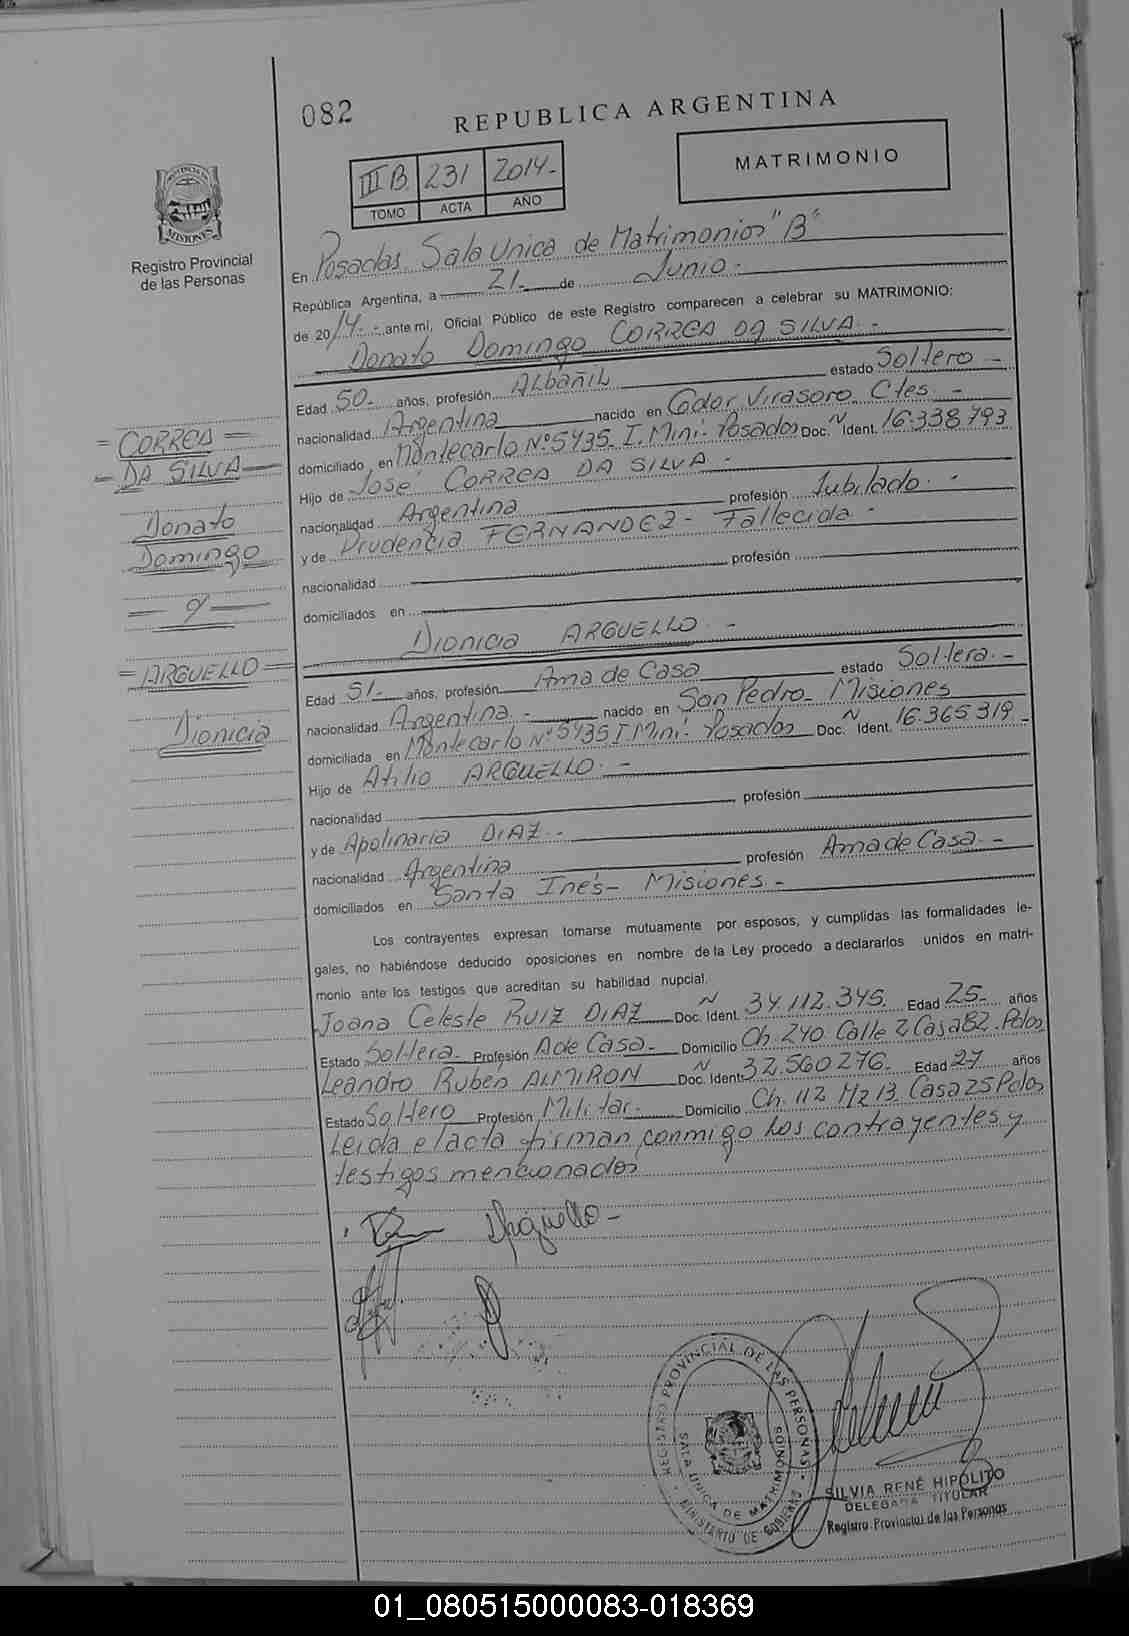 082
REPUBLICA ARGENTINA
III B. 231 2014.-
TOMO ACTA AÑO
MATRIMONIO
PROVINCIA DE
MISIONES
Registro Provincial
de las Personas
En Posadas Sala Unica de Matrimonios "B"
República Argentina, a 21.- de Junio.-
de 2014.- ante mí, Oficial Público de este Registro comparecen a celebrar su MATRIMONIO:
Donato Domingo CORREA DA SILVA.-
Edad 50.- años, profesión Albañil estado Soltero.-
nacionalidad Argentina nacido en Gdor. Virasoro. Ctes.-
domiciliado en Montecarlo Nº 5435. I. Mini.- Posadas Doc. N Ident. 16.338.793
Hijo de Jose CORREA DA SILVA.-
nacionalidad Argentina profesión Jubilado.-
y de Prudencia FERNANDEZ- Fallecida.-
nacionalidad profesión
domiciliados en
= CORREA =
= DA SILVA =
Donato
Domingo
= y =
= ARGUELLO =
Dionicia
Dionicia ARGUELLO.-
Edad 51.- años, profesión Ama de Casa estado Soltera.-
nacionalidad Argentina.- nacido en San Pedro- Misiones
domiciliada en Montecarlo Nº 5435 I Mini.- Posadas Doc. N Ident. 16.365.319.-
Hijo de Atilio ARGUELLO.-
nacionalidad profesión
y de Apolinaria DIAZ.-
nacionalidad Argentina profesión Ama de Casa.-
domiciliados en Santa Inés- Misiones.-
Los contrayentes expresan tomarse mutuamente por esposos, y cumplidas las formalidades le-
gales, no habiéndose deducido oposiciones en nombre de la Ley procedo a declararlos unidos en matri-
monio ante los testigos que acreditan su habilidad nupcial.
Joana Celeste RUIZ DIAZ Doc. N Ident. 34.112.345. Edad 25.- años
Estado Soltera.- Profesión A de Casa.- Domicilio Ch. 240 Calle 2 Casa 82. Pdas
Leandro Ruben ALMIRON Doc. N Ident. 32.560276.- Edad 27 años
Estado Soltero Profesión Militar.- Domicilio Ch. 112 Mz 13. Casa 25 Pdas
Leida el acta firman conmigo los contrayentes y
testigos mencionados
Arguello-
REGISTRO PROVINCIAL DE LAS PERSONAS
SALA UNICA DE MATRIMONIOS
MINISTERIO DE GOBIERNO
SILVIA RENÉ HIPOLITO
DELEGADA TITULAR
Registro Provincial de las Personas
01_080515000083-018369